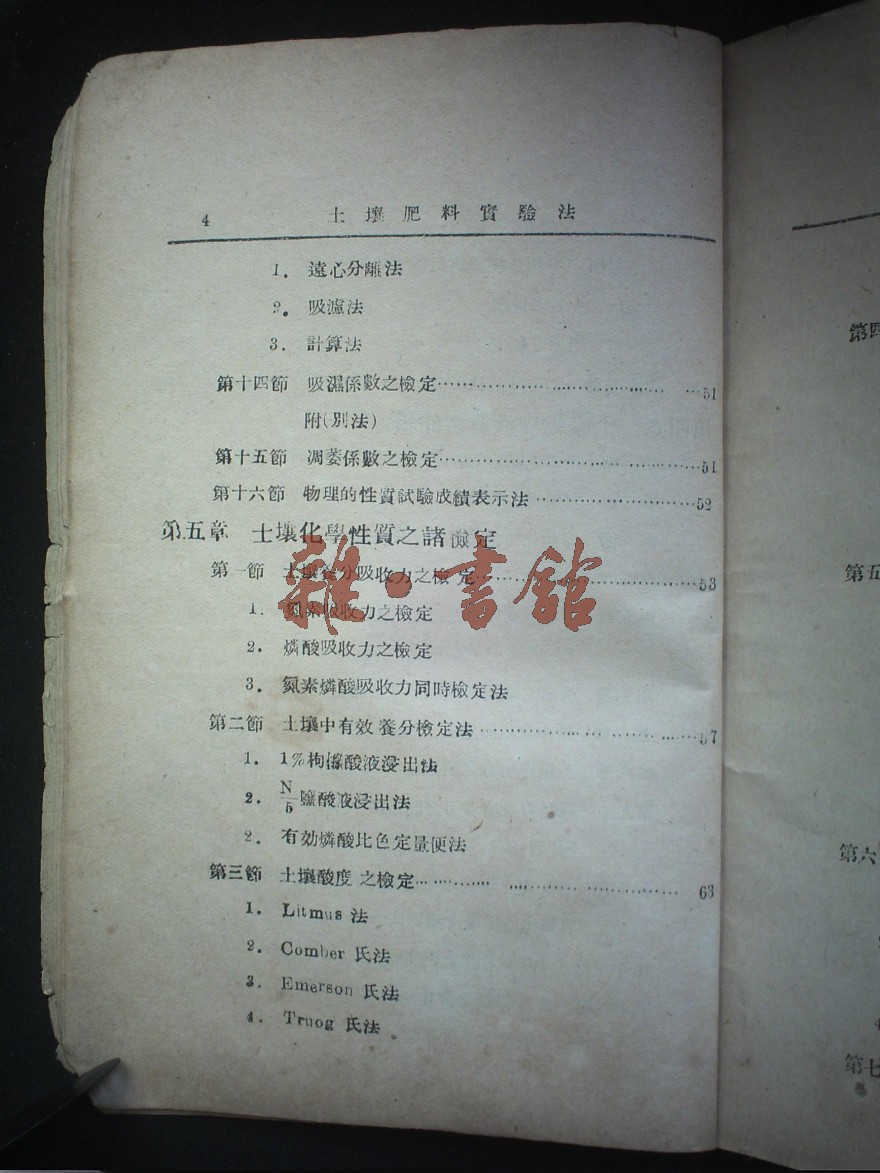 4 土壤肥料實驗法
1. 遠心分離法
2. 吸濾法
3. 計算法
第十四節 吸濕係數之檢定……………………………51
附(別法)
第十五節 凋萎係數之檢定……………………………51
第十六節 物理的性質試驗成績表示法……………………52
第五章 土壤化學性質之諸檢定
第一節 土壤養分吸收力之檢定……………………………53
1. 氮素吸收力之檢定
2. 燐酸吸收力之檢定
3. 氮素燐酸吸收力同時檢定法
第二節 土壤中有效養分檢定法……………………………57
1. 1%枸櫞酸液浸出法
2. N/5 鹽酸液浸出法
2. 有効燐酸比色定量便法
第三節 土壤酸度之檢定……………………………63
1. Litmus 法
2. Comber 氏法
3. Emerson 氏法
4. Truog 氏法
雜·書館
第四
第五
第六
第七